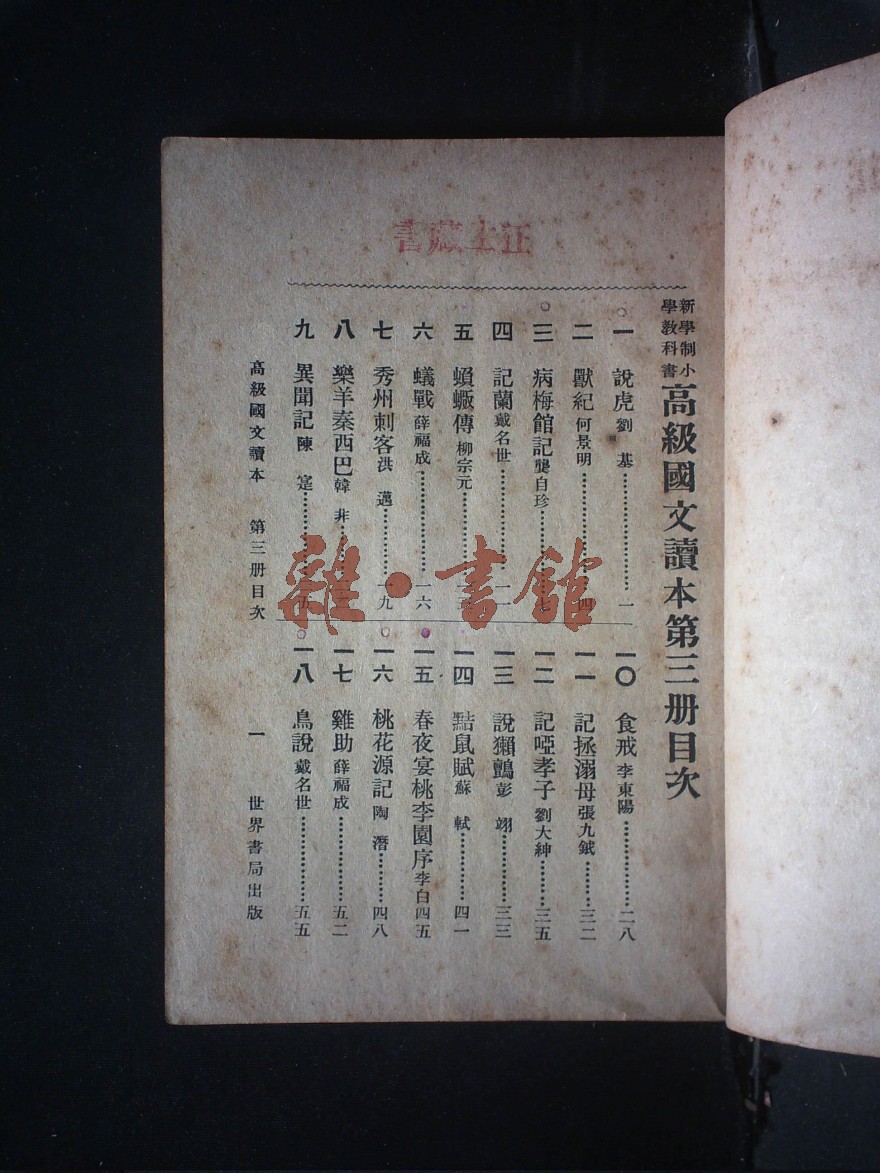 新學制小學教科書
高級國文讀本第三册目次
一 說虎 劉基 一
二 獸紀 何景明 四
三 病梅館記 龔自珍 七
四 記蘭 戴名世 一一
五 蝜蝂傳 柳宗元
六 蟻戰 薛福成 一六
七 秀州刺客 洪邁 一九
八 樂羊秦西巴 韓非
九 異聞記 陳寔 二五
一〇 食戒 李東陽 二八
一一 記拯溺母 張九鉞 三二
一二 記啞孝子 劉大紳 三五
一三 說獺鷧 彭翊 三三
一四 黠鼠賦 蘇軾 四一
一五 春夜宴桃李園序 李白 四五
一六 桃花源記 陶潛 四八
一七 雞助 薛福成 五二
一八 鳥說 戴名世 五五
高級國文讀本 第三册目次 一 世界書局出版
雜·書館